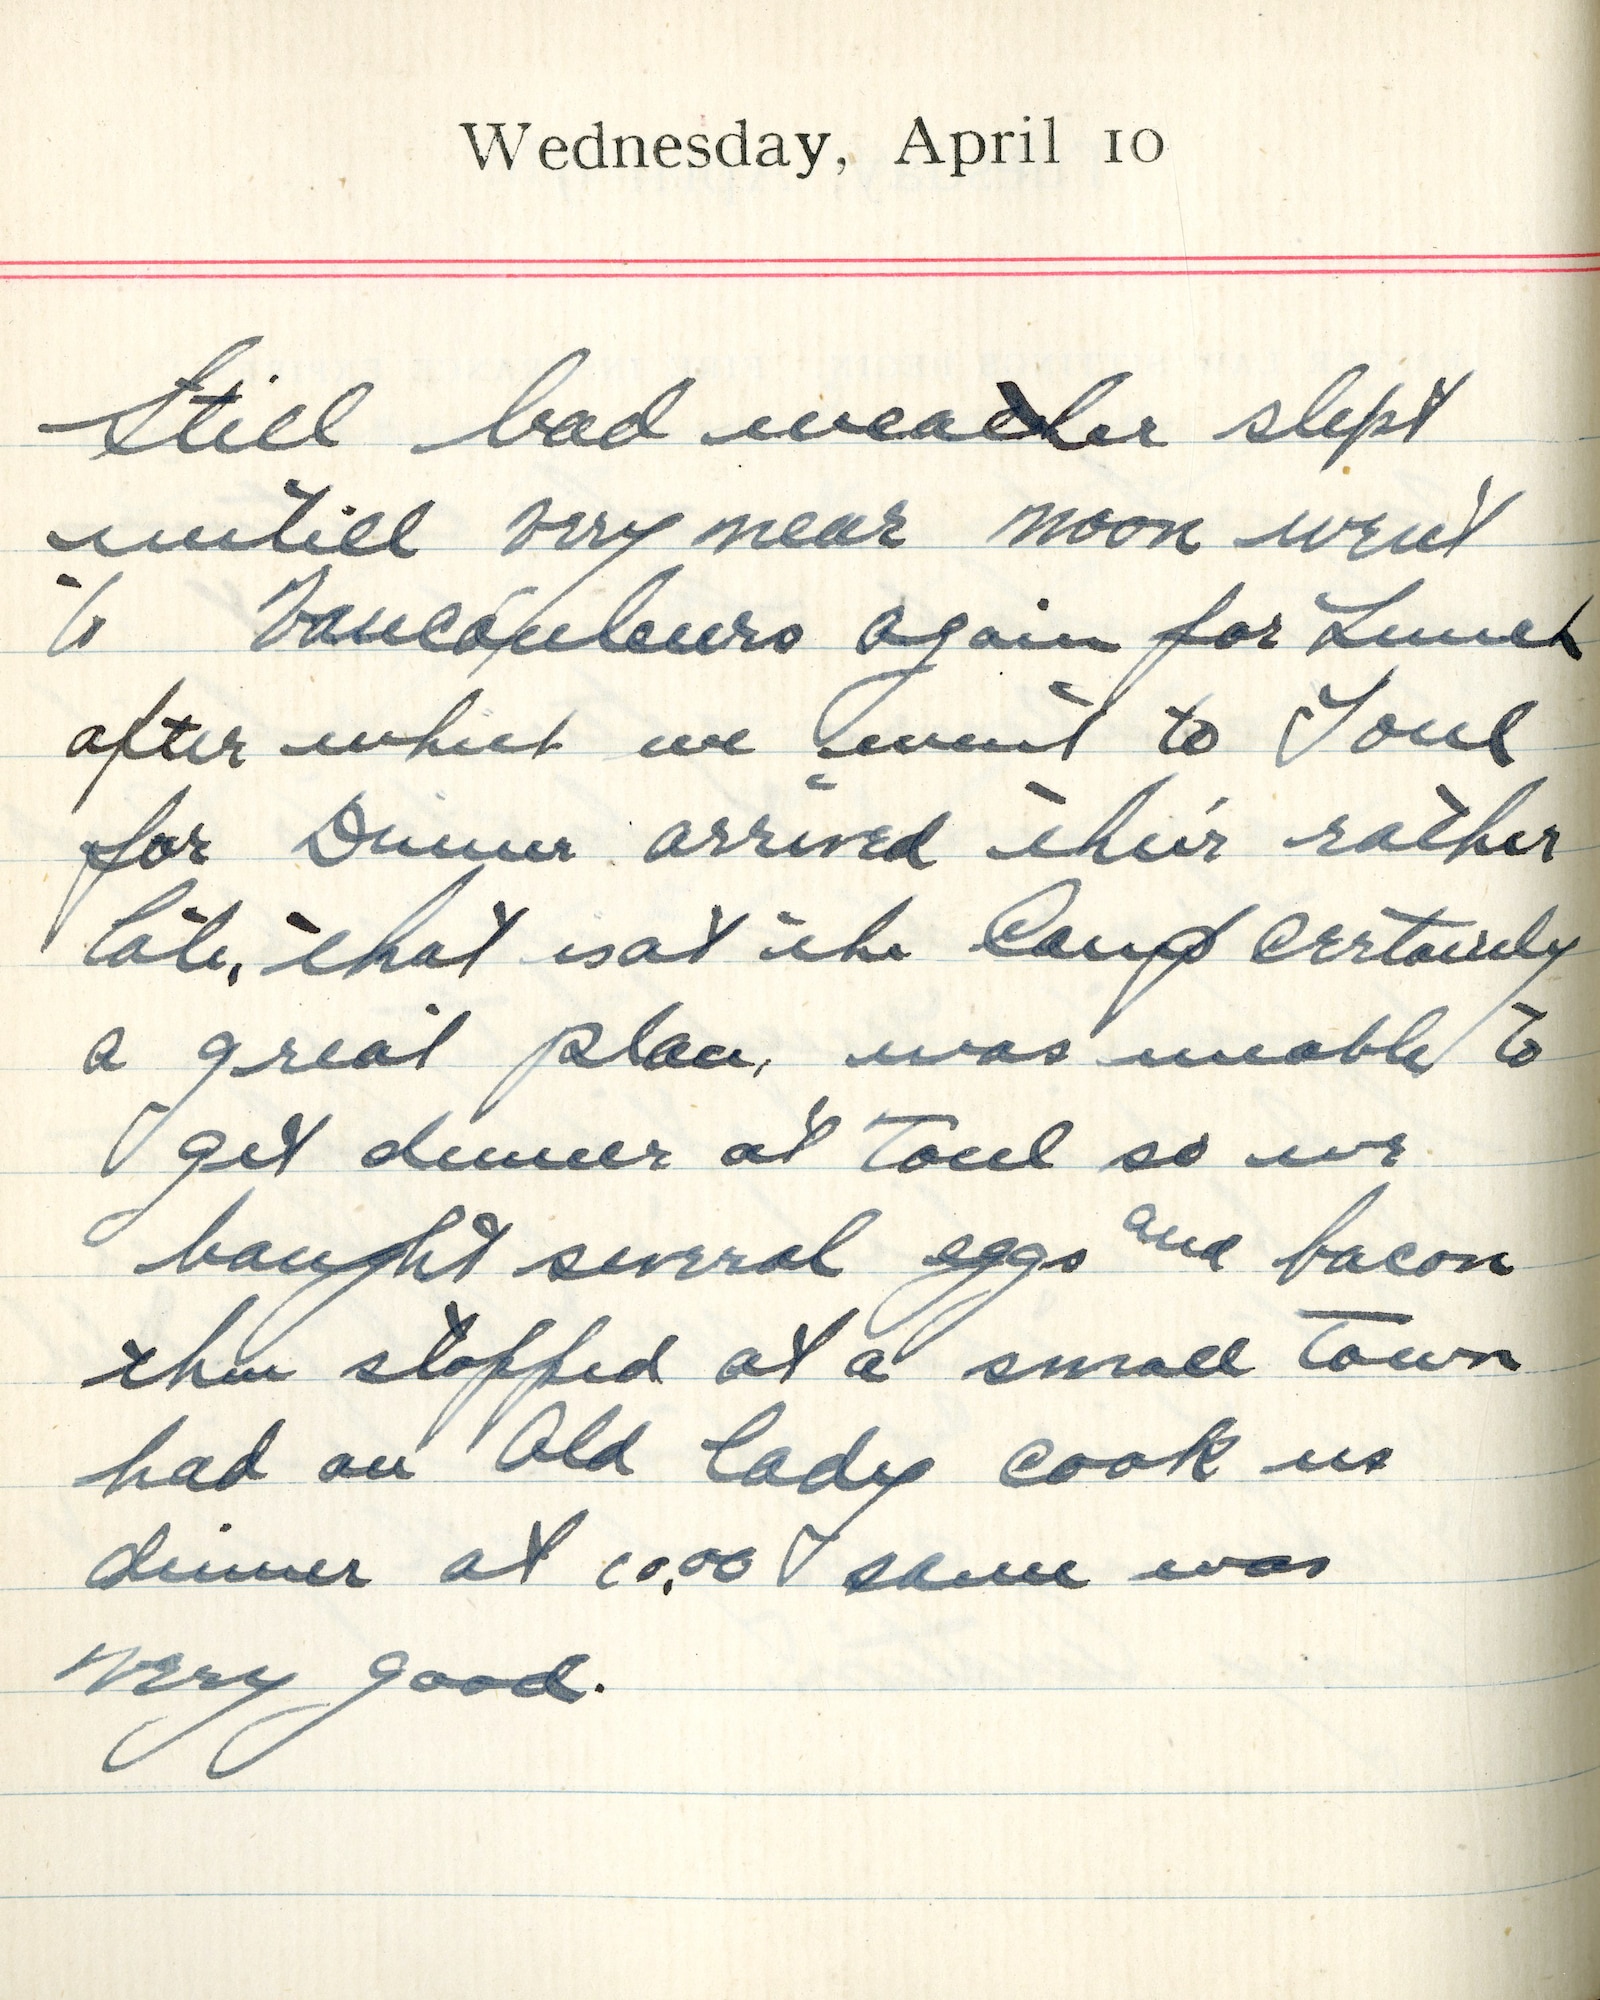 Wednesday, April 10
Still bad weather slept
untill very near noon went
to Vaucouleurs again for Lunch
after which we went to Toul
for Dinner arrived their rather
late, that is at the Camp certainly
a great place, was unable to
get dinner at Toul so we
bought several eggs and bacon
then stopped at a small town
had an Old lady cook us
dinner at 10.00 same was
very good.